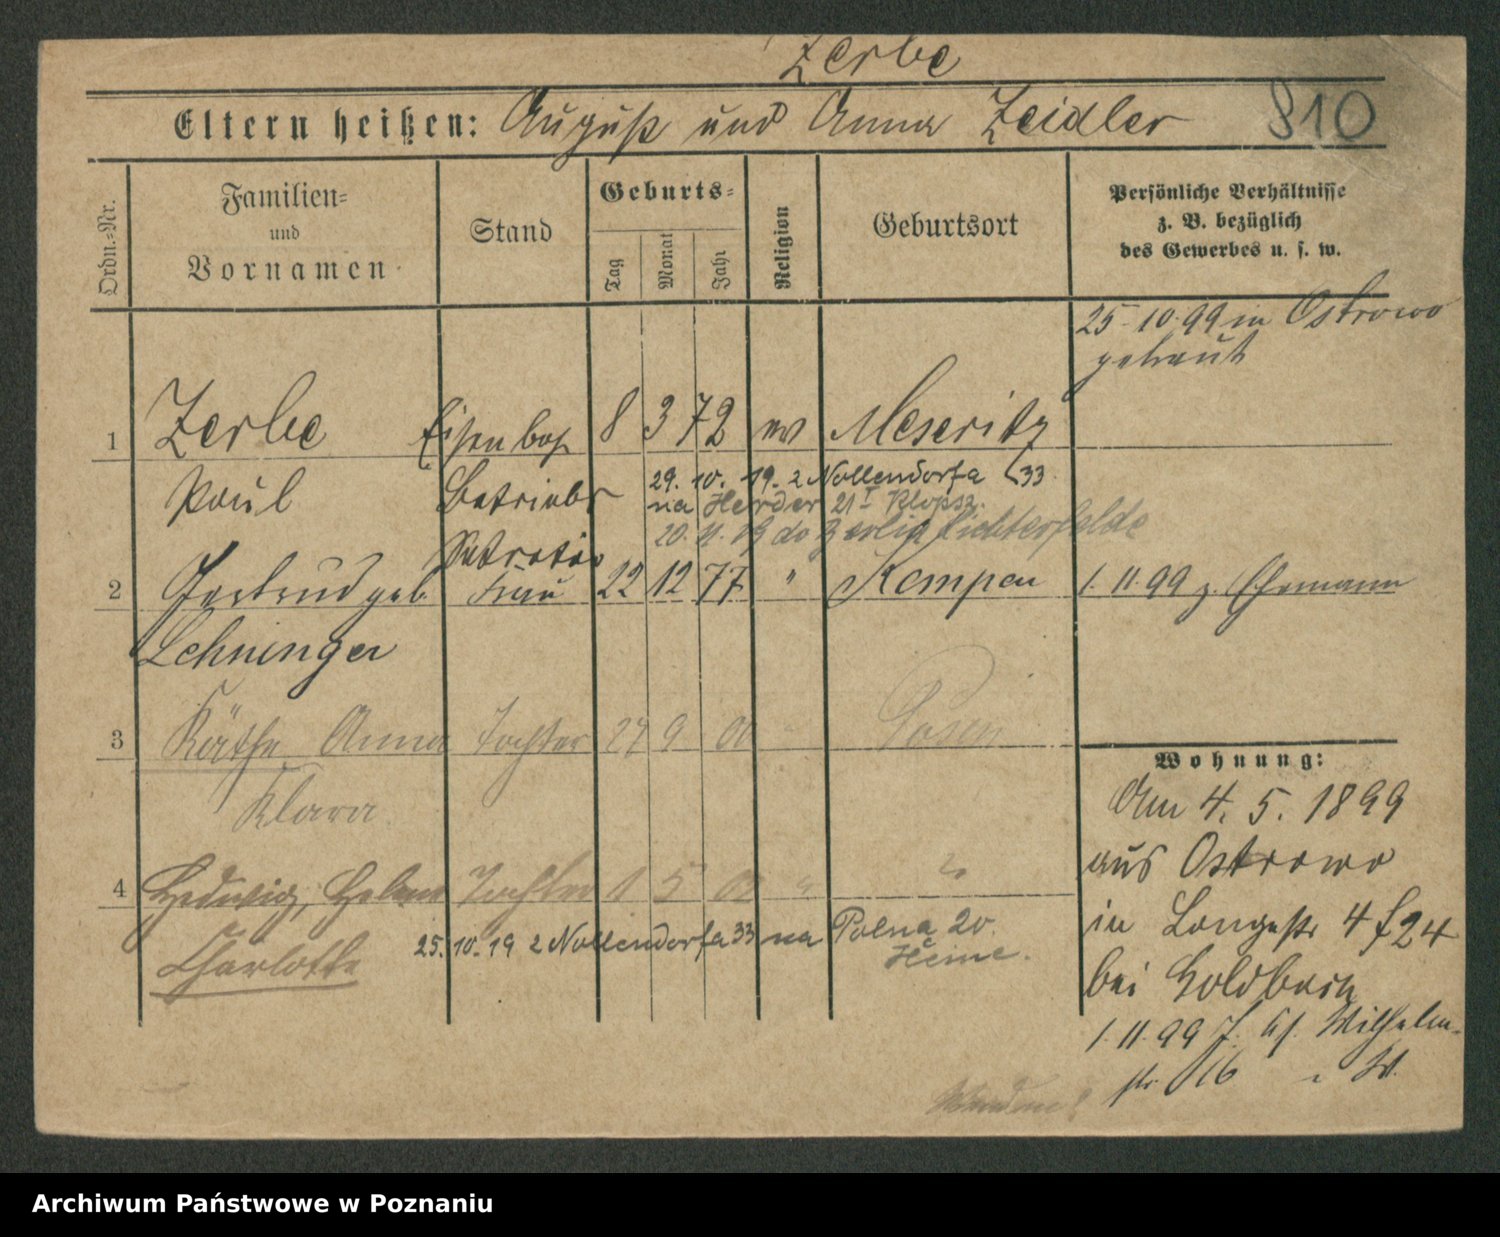 Zerbe
Eltern heißen: August und Anna Zeidler 810
Ordn.-Nr.
Familien-
und
Vornamen
Stand
Geburts-
Tag
Monat
Jahr
Religion
Geburtsort
Persönliche Verhältnisse
z. B. bezüglich
des Gewerbes u. s. w.
25.10.99 in Ostrowo
getraut
1 Zerbe Eisenbah 8 3 72 ev Meseritz
Paul Betriebs
29. 10. 19. z Nollendorfa 33
na Herder 21 I Klopsz.
20. 11. 19 do Berlin Lichterfelde
Sekretär
2 Gertrud geb. Frau 22 12 77 " Kempen 1. 11. 99 z. Ehemann
Lehninger
3 Käthe Anna Tochter 24 9 00 " Posen
Klara
4 Hedwig, Helene Tochter 1 5 02 " "
Charlotte
25. 10. 19 z Nollendorfa 33 na Polna 20.
Heine.
Wohnung:
Am 4. 5. 1899
aus Ostrowo
in Langestr 4
bei Goldbach
1. 11. 99 Wilhelm-
str. 16
Wenden!
Archiwum Państwowe w Poznaniu